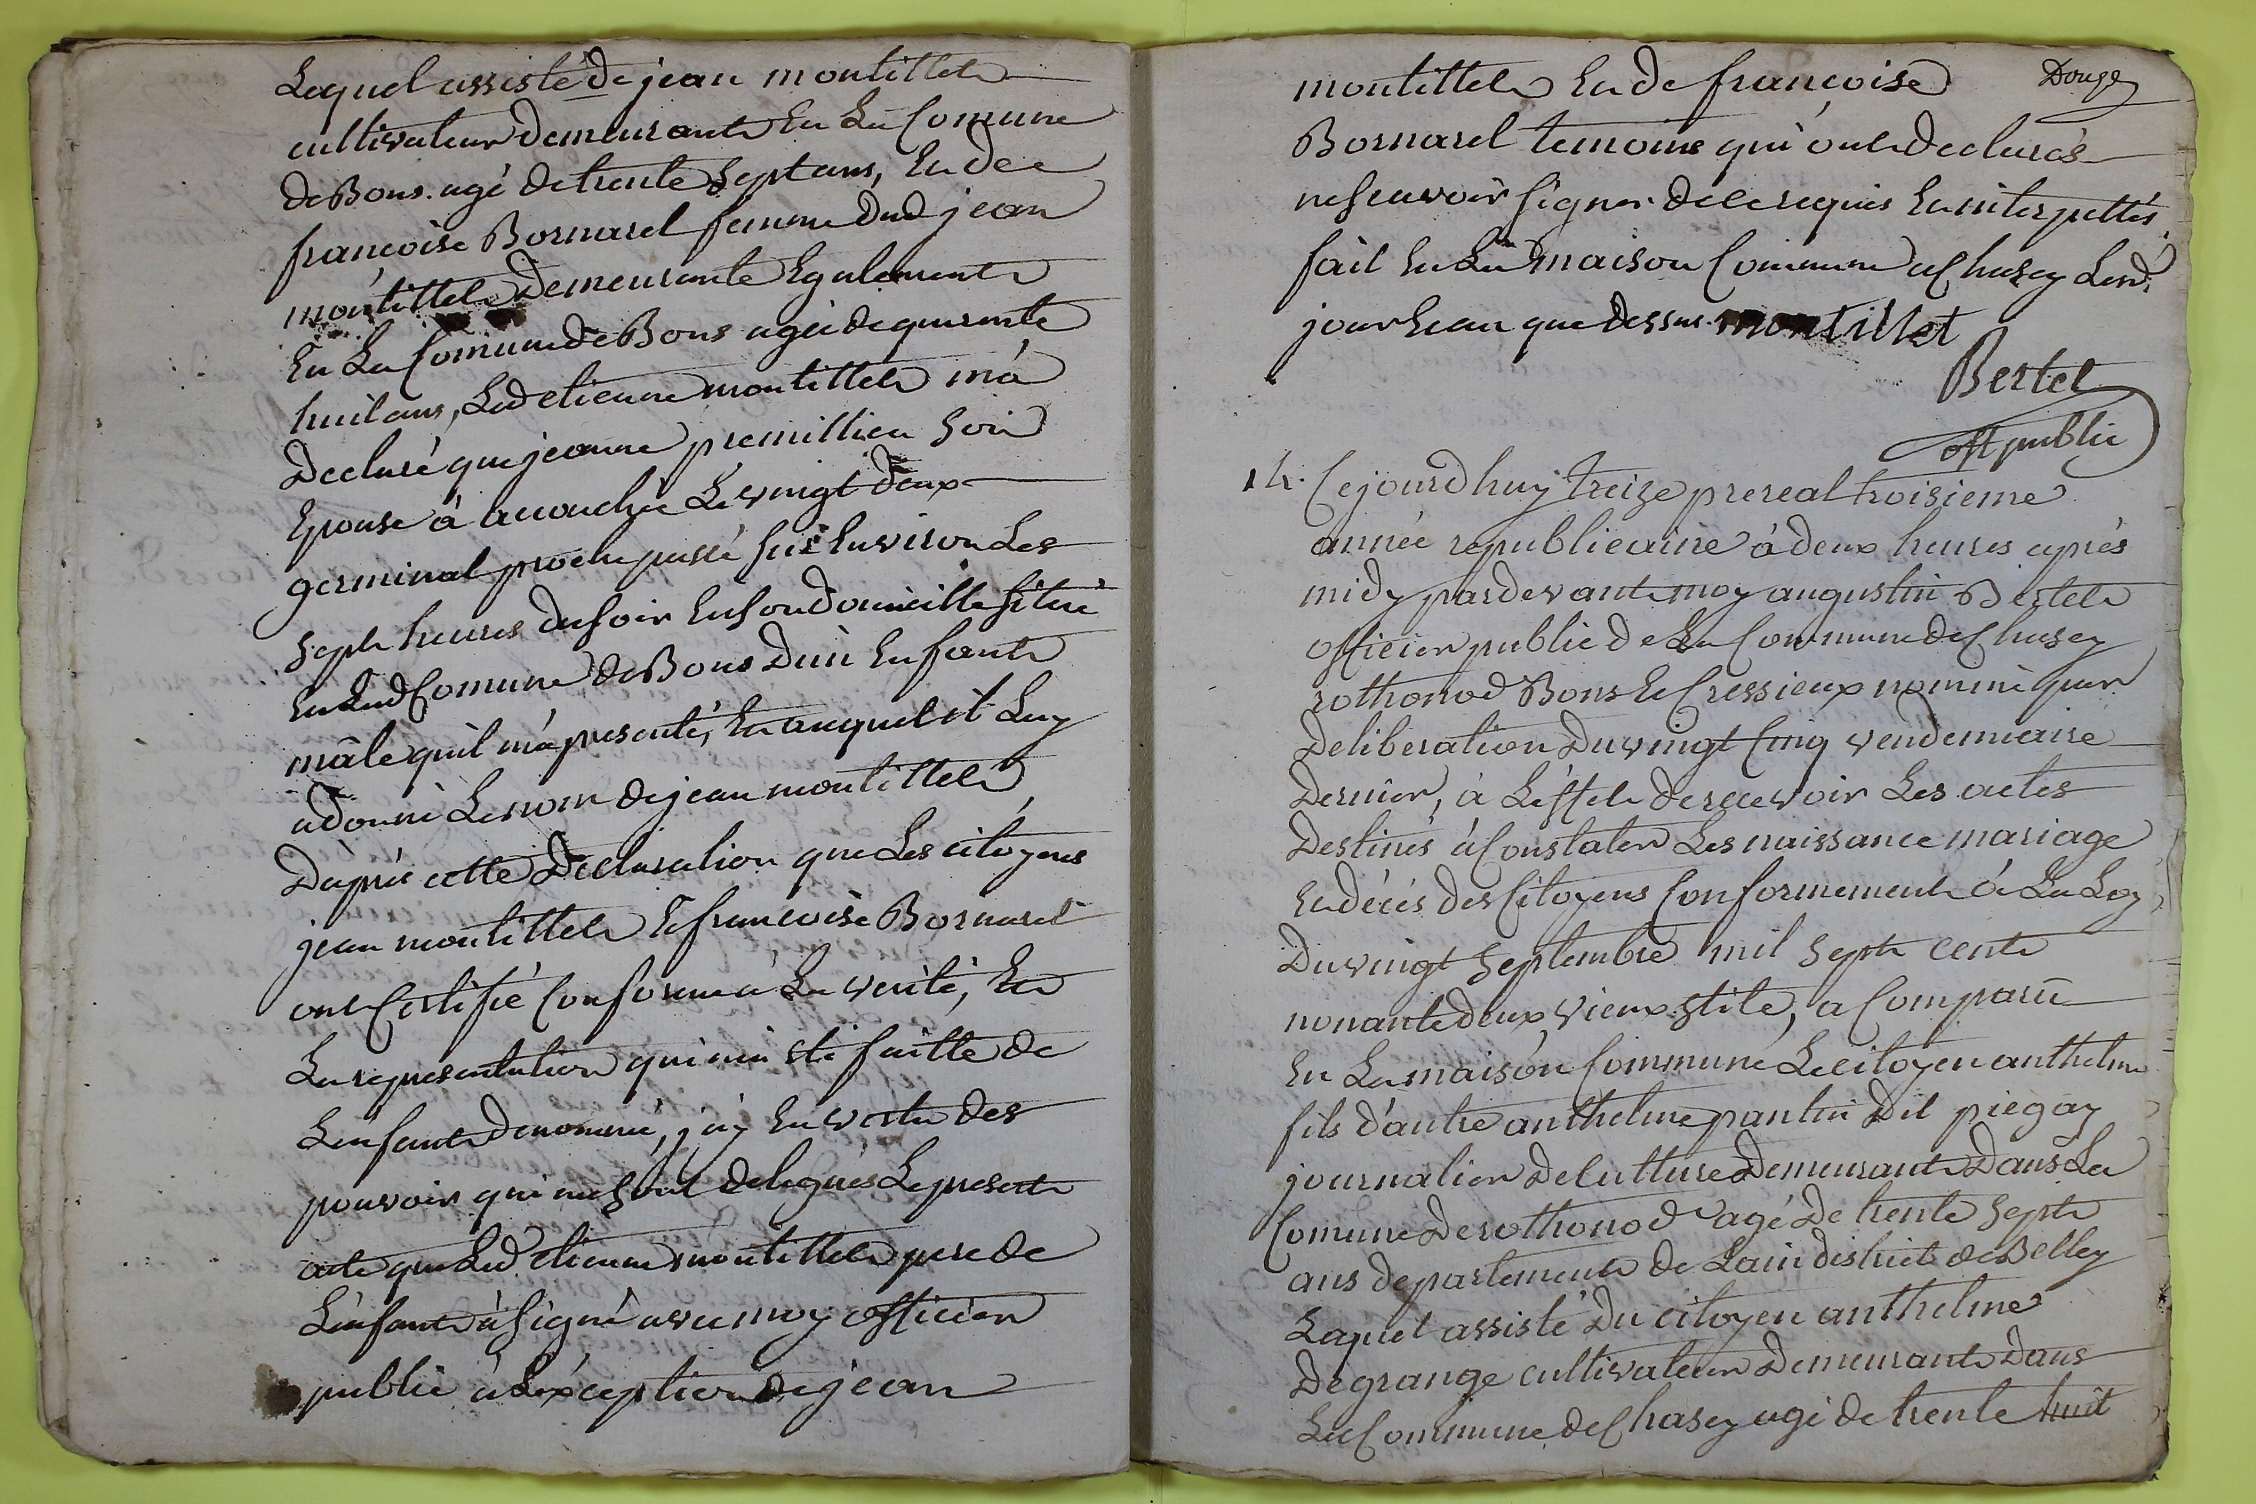 Lequel assisté de jean montillet
cultivateur demeurant en La Comune
de Bons agé de trente Sept ans, et de
francoise Bornarel femme dud jean
montillet Demeurante Egalement
En La Comune de Bons agée de quarente
huit ans, Led etienne montillet m'a
Declaré que jeanne premillieu Son
Epouse à accouchée Le vingt deux
germinal proche passé Sur Environ Les
Sept heures du soir En son Domicille Situé
En Lad Comune de Bons D'un Enfant
mâle qu'il m'a presenté, Et auquel il Luy
a donné Le nom de jean montillet
D'aprés cette Declaration que Les citoyens
jean montillet Et francoise Bornarel
ont Certifié Conforme à La verité, Et
La representation qui m'a été faitte de
L'enfant denommé, j'ay En vertu des
pouvoir qui me Sont delegués Le present
acte que Led etienne montillet pere de
L'enfant à Signé avec moy officier
public à L'exception de jean
Douze
montillet Et de francoise
Bornarel temoins qui ont declarés
ne scavoir Signer de ce requis Et interpellés
fait En La maison Commune a Chasey Lesd
jour Et an que dessus. montillet
Bertet
off public
14. Cejourdhuy treize prereal troisieme
année republiecaine à deux heures aprés
midy pardevant moy augustin Bertet
officier public de La Commune de Chasey
rothonod Bons Et Cressieux nommé par
Deliberation Du vingt Cinq vendemiaire
Dernier, à L'effet de recevoir Les actes
Destinés à Constater Les naissance mariage
Et décés des Citoyens Conformement à La Loy
Du vingt Septembre mil Sept cent
nonante deux vieux Stile, a Comparu
En La maison Commune Le citoyen anthelme
fils d'autre anthelme pantin Dit piegay
journalier De culture Demeurant Dans La
Comune De rothonod agé De trente Sept
ans departement de L'ain district de Belley
Lequel assisté Du citoyen anthelme
Degrange cultivateur Demeurant Dans
La Commune de Chasey agé de trente huit